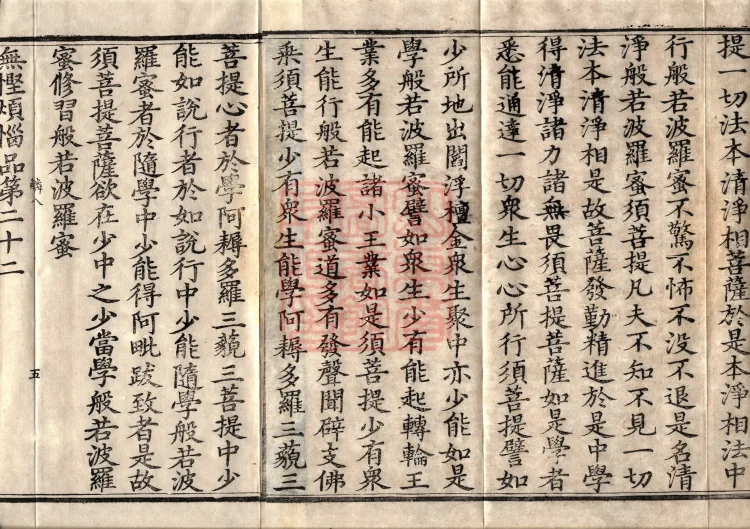 提一切法本清淨相菩薩於是本淨相法中
行般若波羅蜜不驚不怖不没不退是名清
淨般若波羅蜜須菩提凡夫不知不見一切
法本清淨相是故菩薩發勤精進於是中學
得清淨諸力諸無畏須菩提菩薩如是學者
悉能通達一切衆生心心所行須菩提譬如
少所地出閻浮檀金衆生聚中亦少能如是
學般若波羅蜜譬如衆生少有能起轉輪王
業多有能起諸小王業如是須菩提少有衆
生能行般若波羅蜜道多有發聲聞辟支佛
乗須菩提少有衆生能學阿耨多羅三藐三
菩提心者於學阿耨多羅三藐三菩提中少
能如說行者於如說行中少能隨學般若波
羅蜜者於隨學中少能得阿毗跋致者是故
須菩提菩薩欲在少中之少當學般若波羅
蜜修習般若波羅蜜
五
無慳煩惱品第二十二